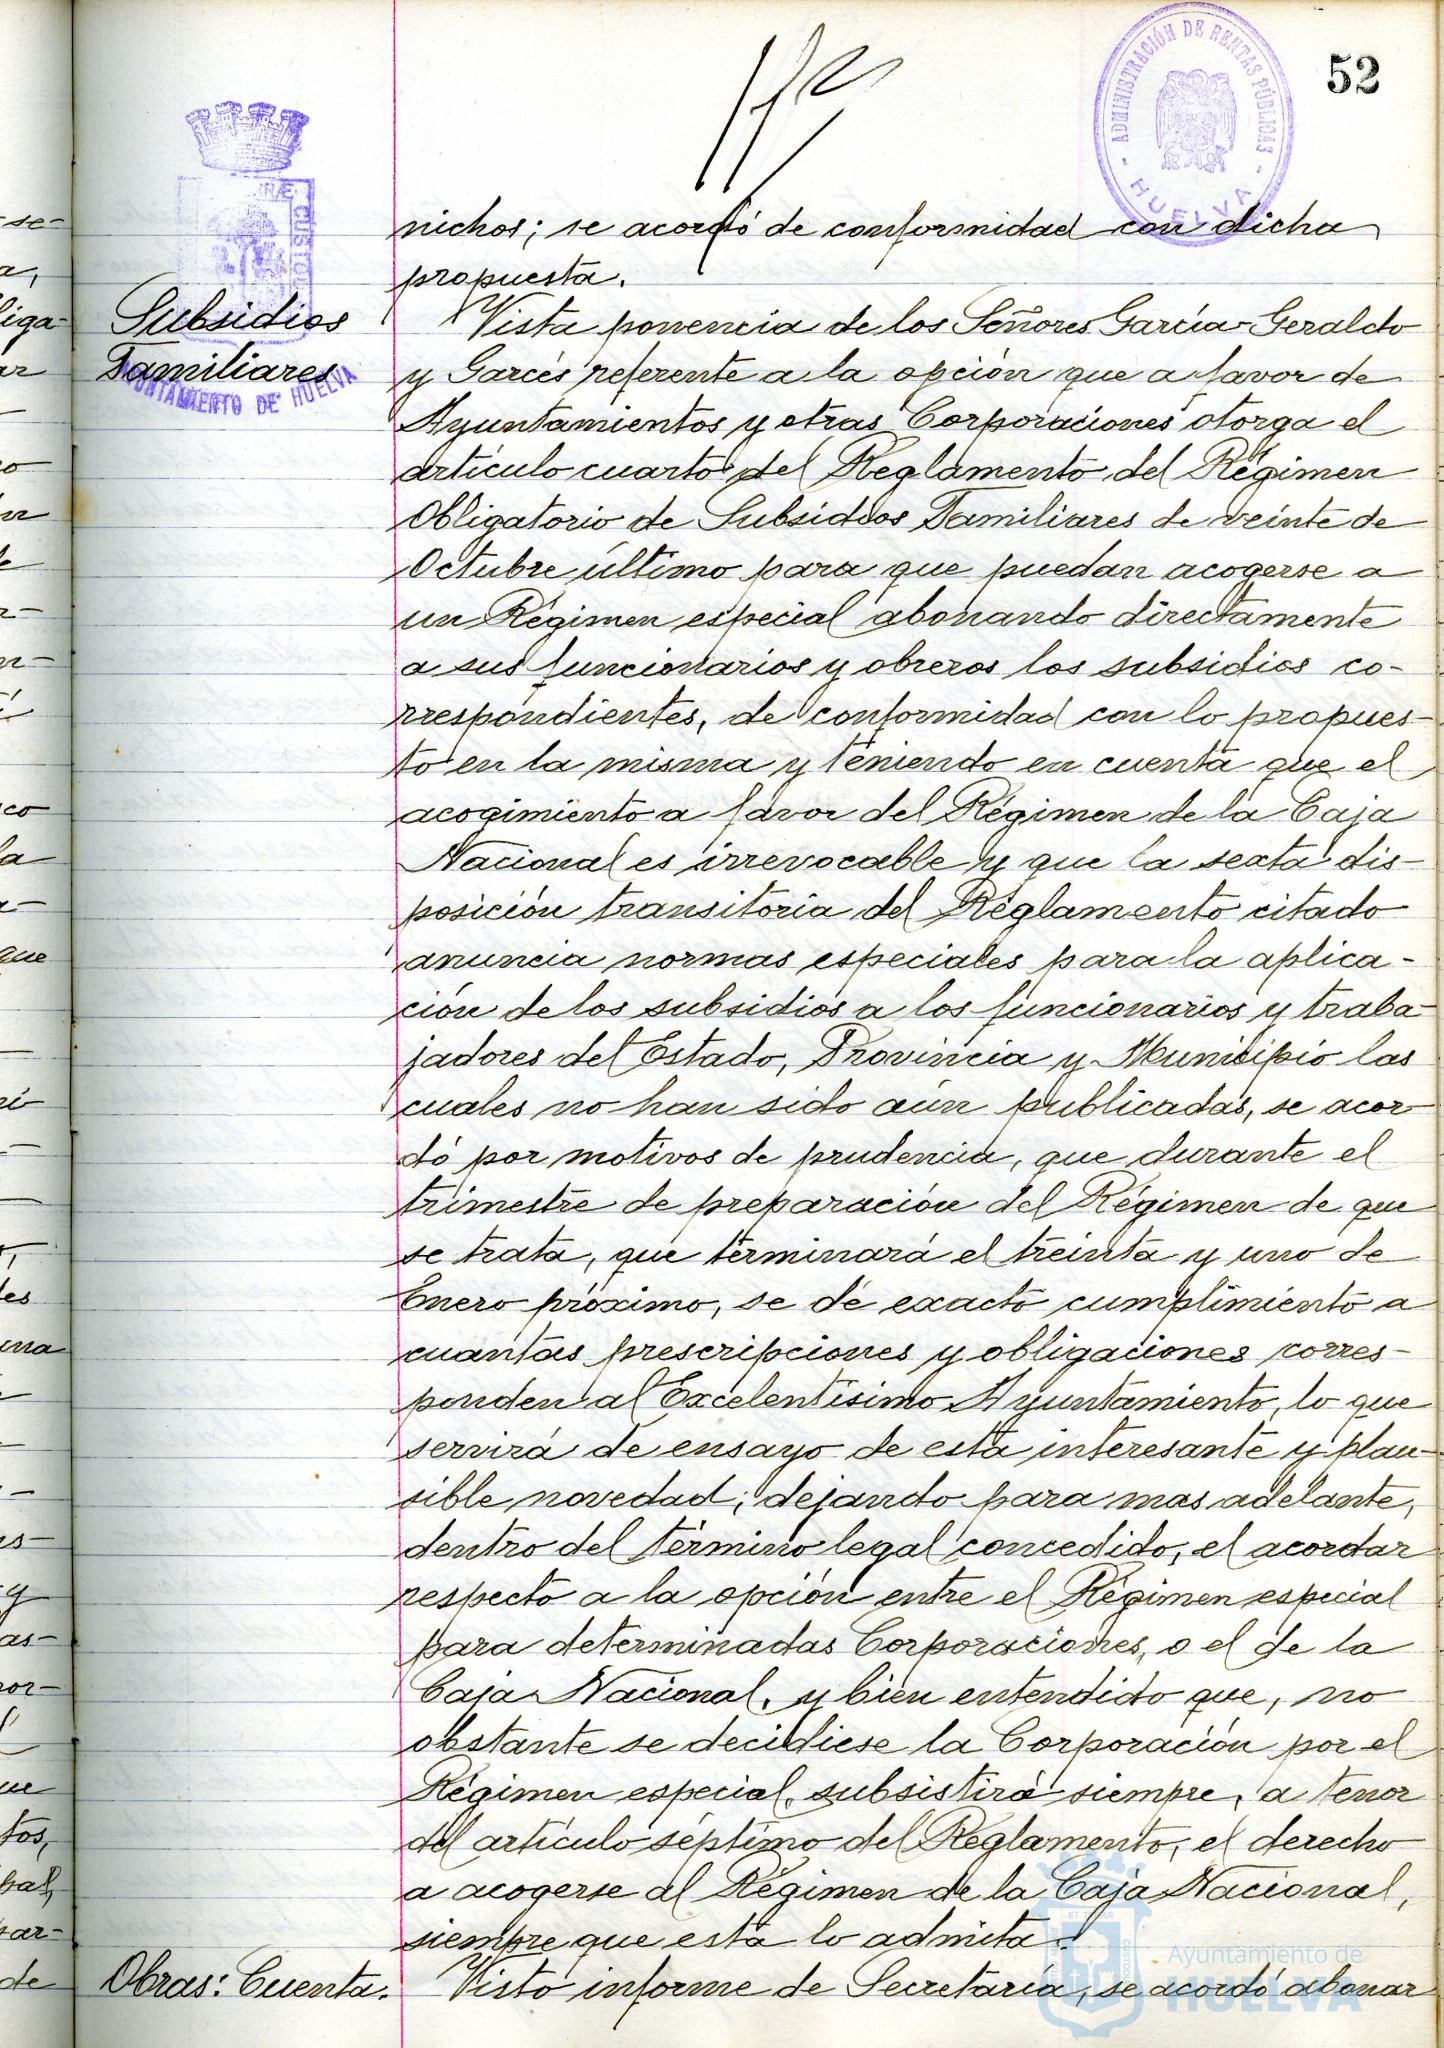 52
ADMINISTRACIÓN DE RENTAS PÚBLICAS
HUELVA
CUSTOD
AYUNTAMIENTO DE HUELVA
nichos; se acordó de conformidad con dicha
propuesta.
Subsidios
Familiares
Vista ponencia de los Señores García-Geraldo
y Garcés referente a la opción que a favor de
Ayuntamientos y otras Corporaciones otorga el
artículo cuarto del Reglamento del Régimen
Obligatorio de Subsidios Familiares de veinte de
Octubre último para que puedan acogerse a
un Régimen especial abonando directamente
a sus funcionarios y obreros los subsidios co-
rrespondientes, de conformidad con lo propues-
to en la misma y teniendo en cuenta que el
acogimiento a favor del Régimen de la Caja
Nacional es irrevocable y que la sexta dis-
posición transitoria del Reglamento citado
anuncia normas especiales para la aplica-
ción de los subsidios a los funcionarios y traba-
jadores del Estado, Provincia y Municipio las
cuales no han sido aún publicadas, se acor-
dó por motivos de prudencia, que durante el
trimestre de preparación del Régimen de que
se trata, que terminará el treinta y uno de
Enero próximo, se dé exacto cumplimiento a
cuantas prescripciones y obligaciones corres-
ponden al Excelentísimo Ayuntamiento, lo que
servirá de ensayo de esta interesante y plau-
sible novedad; dejando para mas adelante,
dentro del término legal concedido, el acordar
respecto a la opción entre el Régimen especial
para determinadas Corporaciones, o el de la
Caja Nacional, y bien entendido que, no
obstante se decidiese la Corporación por el
Régimen especial, subsistirá siempre, a tenor
del artículo séptimo del Reglamento, el derecho
a acogerse al Régimen de la Caja Nacional,
siempre que esta lo admita.
Obras: Cuenta. Visto informe de Secretaría, se acordó abonar
Ayuntamiento de
HUELVA